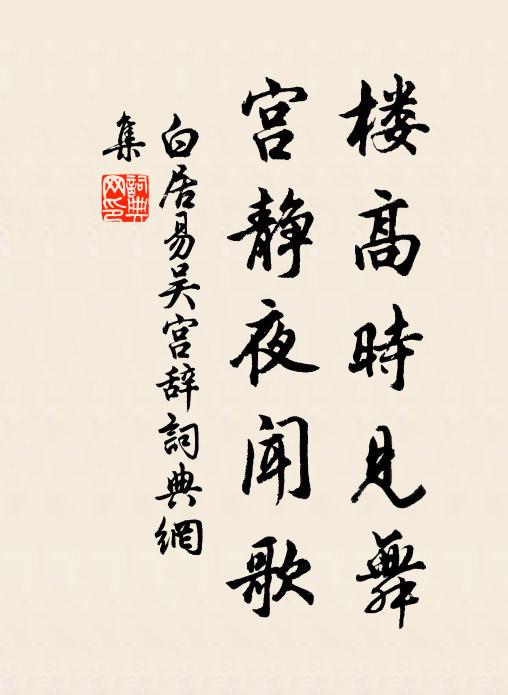 楼高時见舞
宫静夜闻歌
白居易吴宫辞詞典網
集
詞典网印